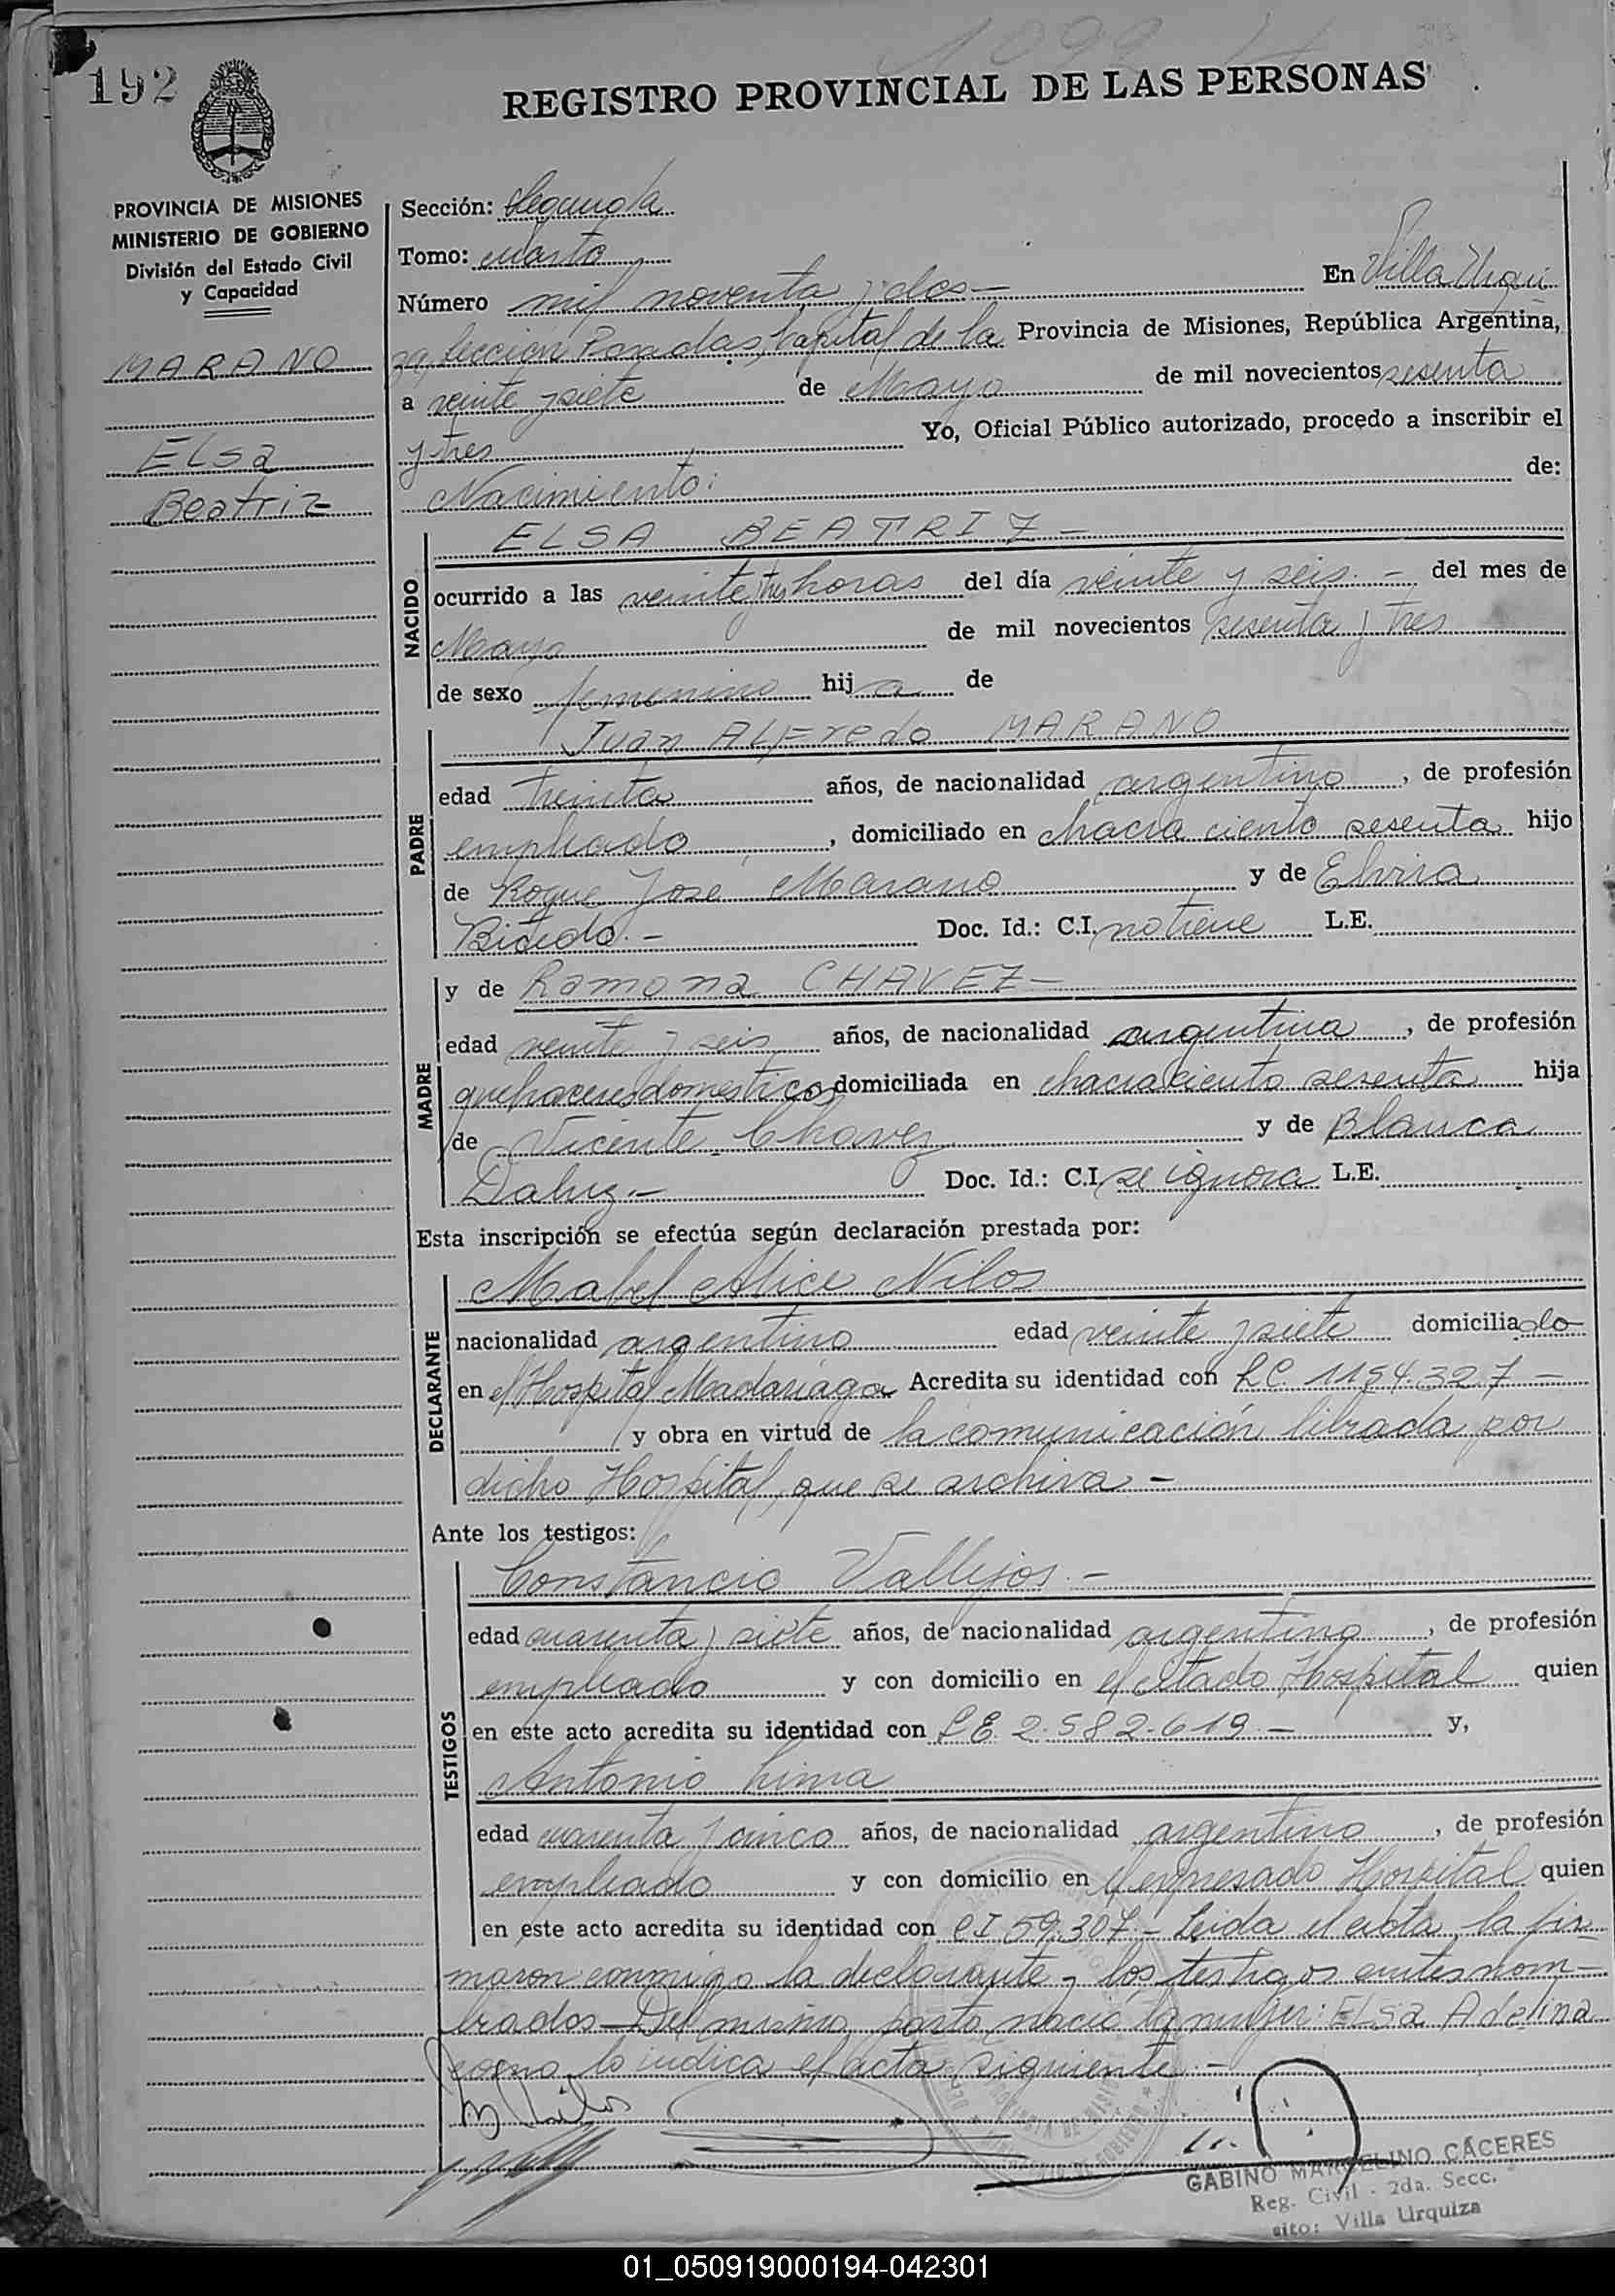 192
REGISTRO PROVINCIAL DE LAS PERSONAS
PROVINCIA DE MISIONES
MINISTERIO DE GOBIERNO
División del Estado Civil
y Capacidad
MARANO
ELSa
Beatriz
Sección: Segunda
Tomo: cuarto
Número mil noventa y dos — En Villa Urqui
za, Sección Posadas, Capital de la Provincia de Misiones, República Argentina,
a veinte y siete de Mayo de mil novecientos sesenta
y tres Yo, Oficial Público autorizado, procedo a inscribir el
Nacimiento: de:
NACIDO
ELSA BEATRIZ —
ocurrido a las veinte y tres horas del día veinte y seis. — del mes de
Mayo de mil novecientos sesenta y tres
de sexo femenino hij a de
PADRE
Juan ALFredo MARANO
edad treinta años, de nacionalidad argentino, de profesión
empleado, domiciliado en chacra ciento sesenta hijo
de Roque Jose Marano y de Elvira
Doc. Id.: C.I. no tiene L.E.
MADRE
y de Ramona CHAVEZ —
edad veinte y seis años, de nacionalidad argentina, de profesión
quehaceres domesticos domiciliada en chacra ciento sesenta hija
de Vicente Chavez y de Blanca
Daluz. — Doc. Id.: C.I. se ignora L.E.
Esta inscripción se efectúa según declaración prestada por:
DECLARANTE
Mabel Alice Nilos
nacionalidad argentino edad veinte y siete domiciliado
en el Hospital Madariaga Acredita su identidad con LC. 1154.327 —
y obra en virtud de la comunicación librada por
dicho Hospital, que se archiva —
Ante los testigos:
TESTIGOS
Constancio Vallejos. —
edad cuarenta y siete años, de nacionalidad argentino, de profesión
empleado y con domicilio en el citado Hospital quien
en este acto acredita su identidad con LE. 2.582.619. — y,
Antonio Lima
edad cuarenta y cinco años, de nacionalidad argentino, de profesión
empleado y con domicilio en el expresado Hospital quien
en este acto acredita su identidad con CI 59.307. — Leida el acta, la fir
maron conmigo la declarante y los testigos antes nom—
brados — Del mismo parto nació la mujer: ELSa Adelina
como lo indica el acta siguiente. —
GABINO MARCELINO CÁCERES
Reg. Civil - 2da. Secc.
sito: Villa Urquiza
01_050919000194-042301